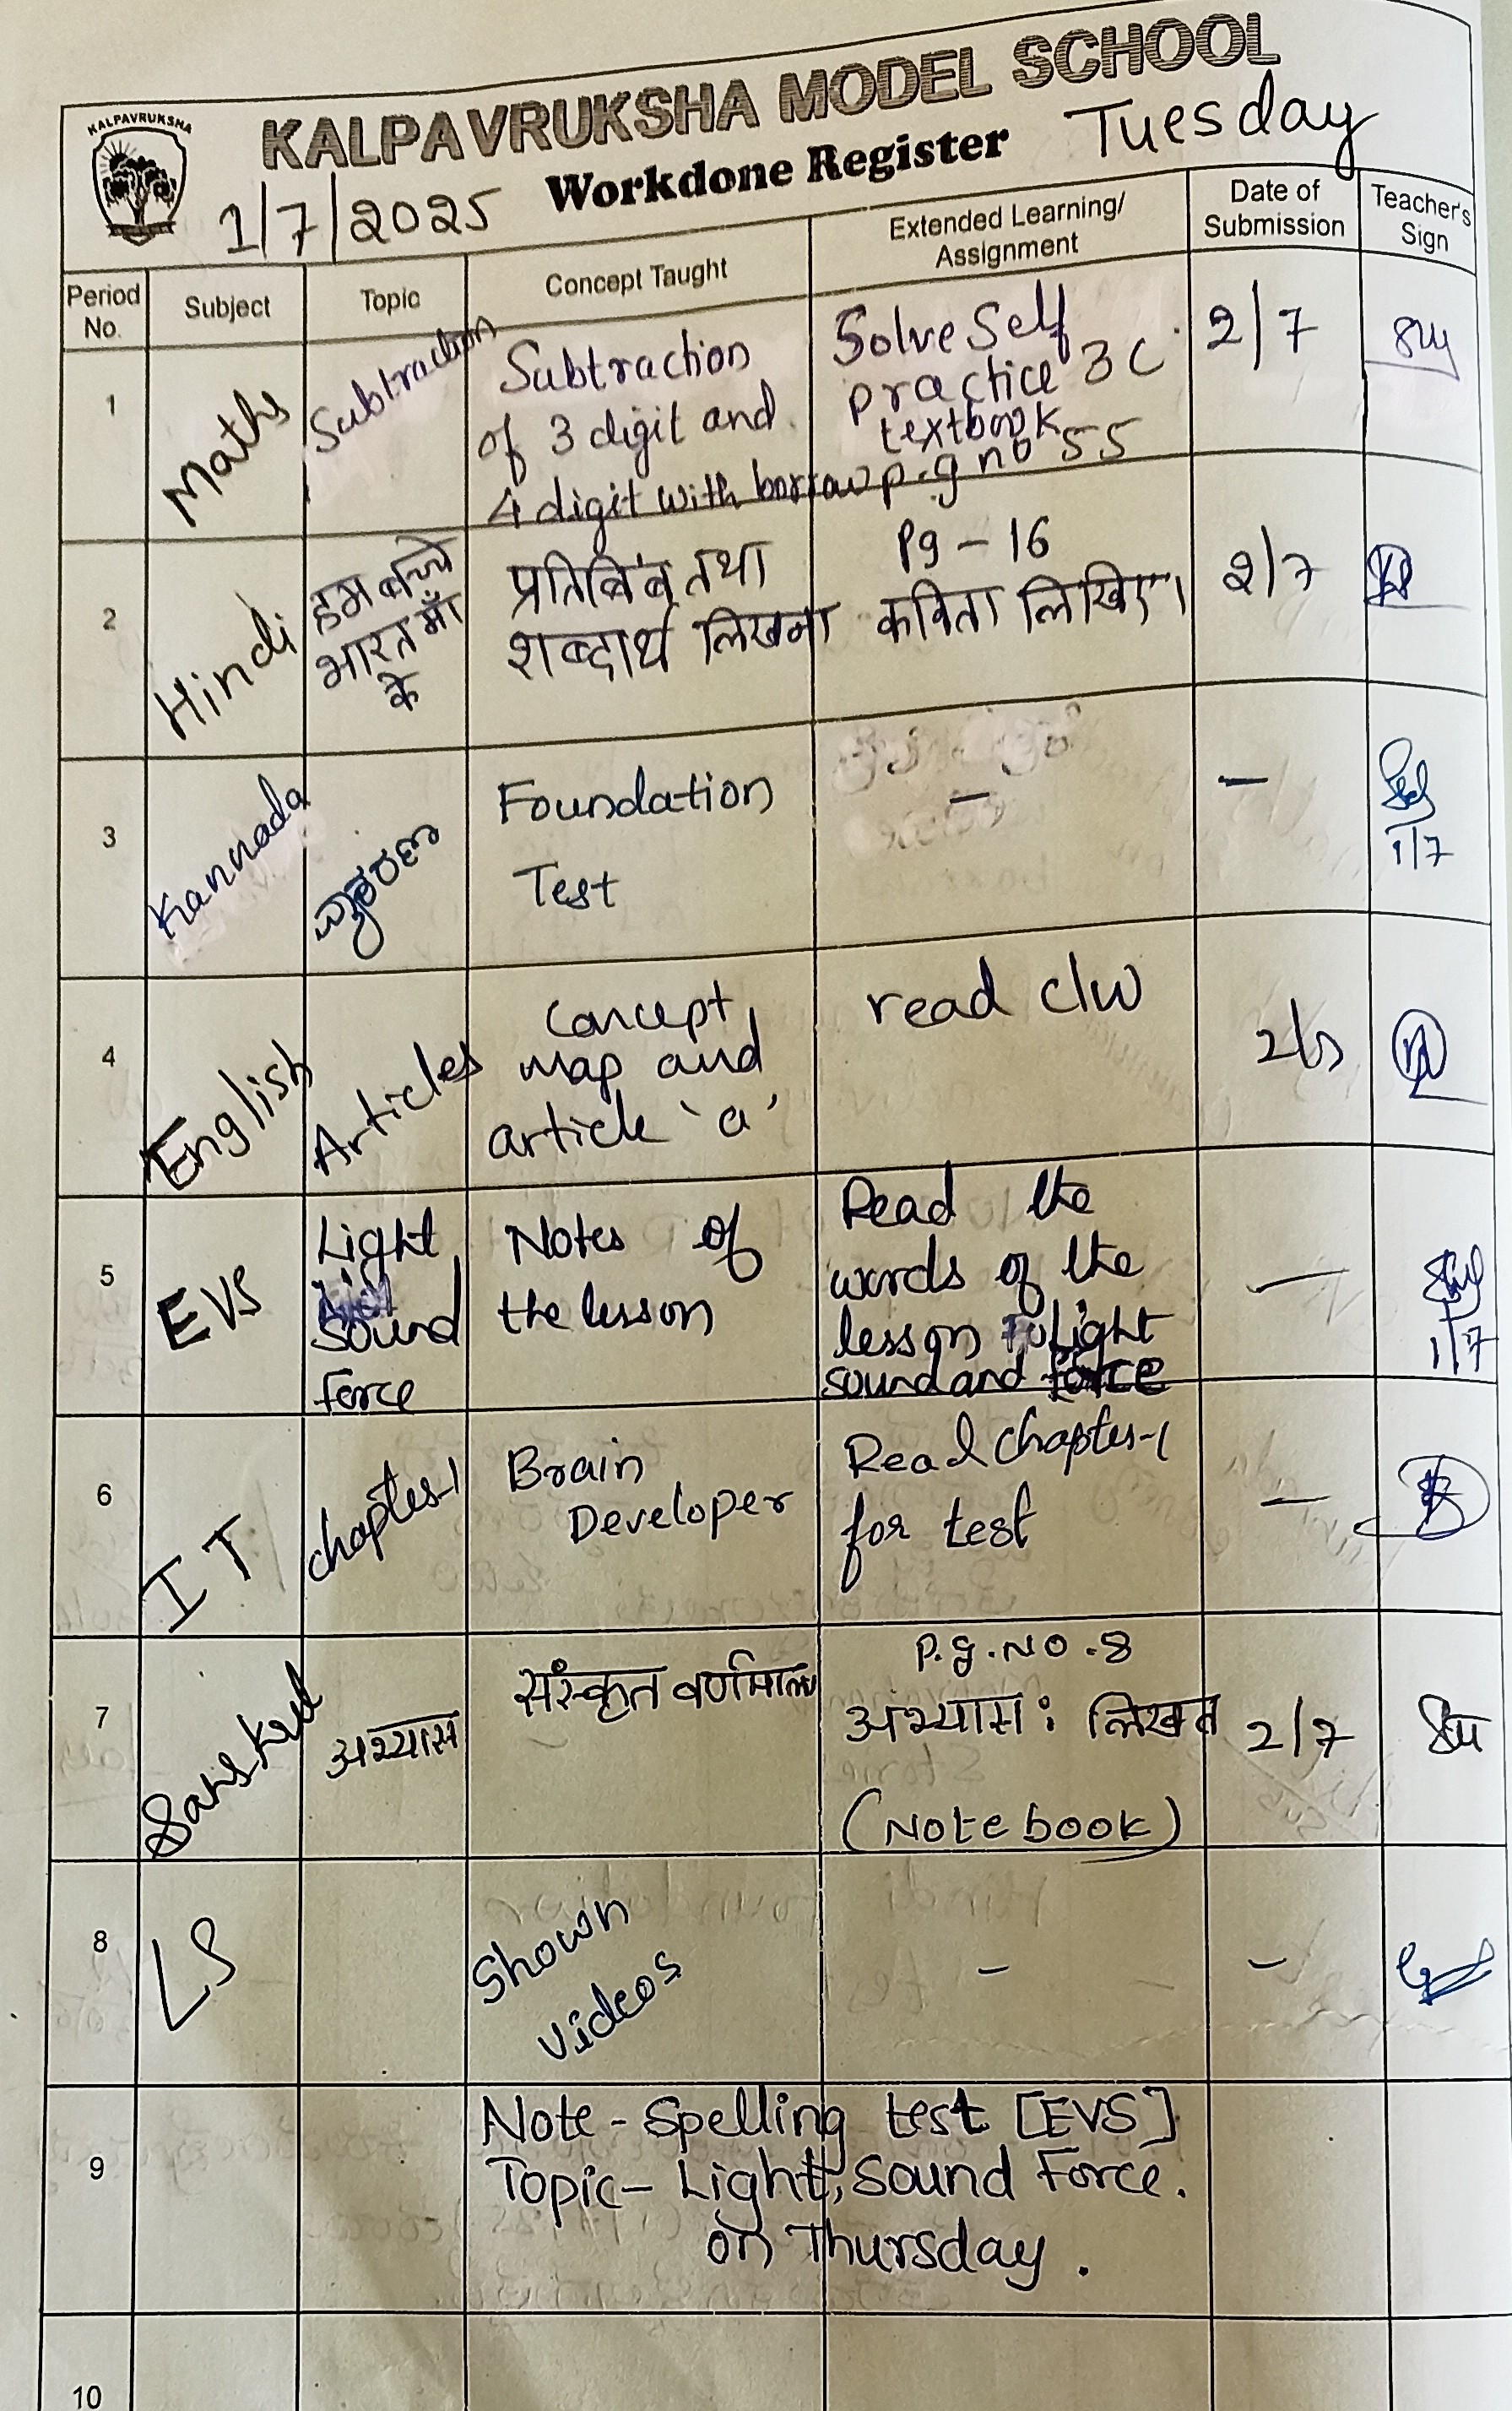 KALPAVRUKSHA
KALPAVRUKSHA MODEL SCHOOL
Workdone Register
Tuesday
1/7/2025
Period No.
Subject
Topic
Concept Taught
Extended Learning/
Assignment
Date of
Submission
Teacher's
Sign
1
Maths
Subtraction
Subtraction
of 3 digit and
4 digit with borrow
Solve Self
practice 3C
textbook
p.g no 55
2/7
2
Hindi
हम बच्चे
भारत माँ
के
प्रतिबिंब तथा
शब्दार्थ लिखना
Pg - 16
कविता लिखिए।
2/7
3
Kannada
Foundation
Test
-
-
1/7
4
English
Articles
Concept
map and
article 'a'
read c/w
5
EVS
Light
Sound
Force
Notes of
the lesson
Read the
words of the
lesson Light
sound and force
-
1/7
6
IT
chapter-1
Brain
Developer
Read chapter-1
for test
-
7
Sanskrit
अभ्यास
संस्कृत वर्णमाला
P.g.No.8
अभ्यासः लिखत
(Notebook)
2/7
8
LS
Shown
videos
-
-
9
Note - Spelling test [EVS]
Topic - Light, Sound Force.
on Thursday.
10